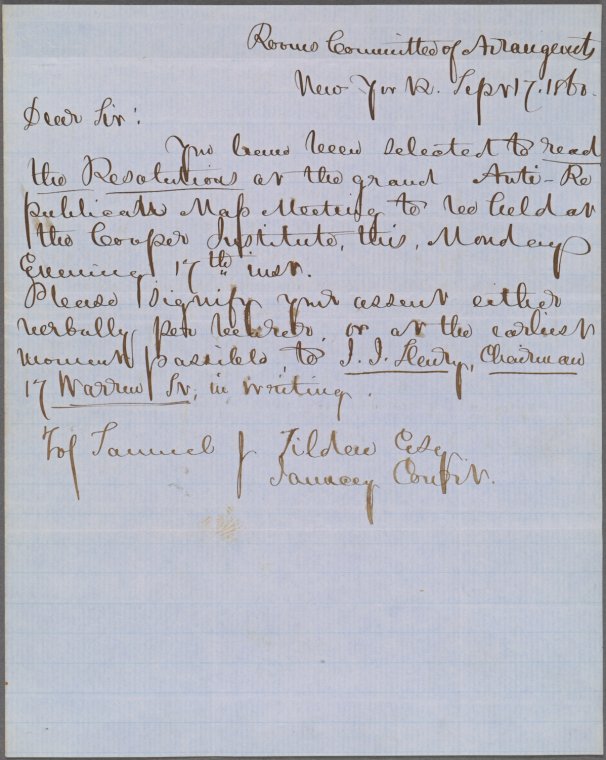 Rooms Committee of Arrangents
New York. Sept 17. 1860.
Dear Sir:
You have been selected to read
the Resolutions at the grand Anti-Re
publican Mass Meeting to be held at
the Cooper Institute, this, Monday
Evening 17th inst.
Please signify your assent either
verbally per bearer, or at the earliest
moment possible, to J. J. Henry, Chairman
17 Warren St, in writing.
To Samuel J Tilden Esq